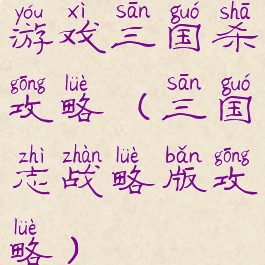 yóu xì sān guó shā
游戏三国杀
gōng lüè sān guó
攻略（三国
zhì zhàn lüè bǎn gōng
志战略版攻
lüè
略）